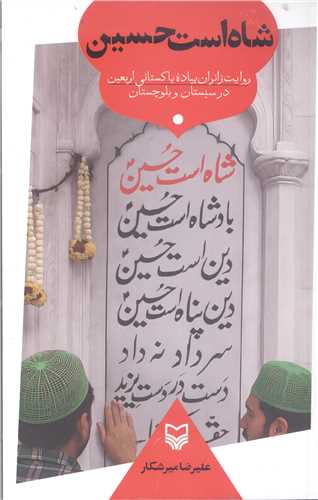 شاه است حسین
روایت زائران پیاده پاکستانی اربعین
در سیستان و بلوچستان
شاه است حسین
بادشاه است حسین
دین است حسین
دین پناه است حسین
سرداد نه داد
دست در دست یزید
علیرضا میرشکار